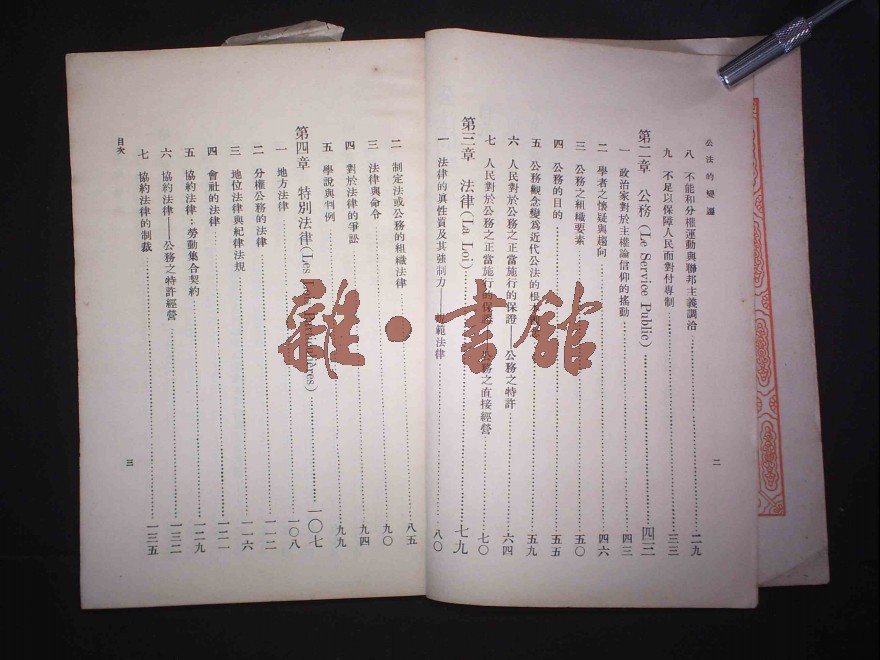 公法的變遷
八 不能和分權運動與聯邦主義調洽 二九
九 不足以保障人民而對付專制 三三
第二章 公務(Le Service Public) 四三
一 政治家對於主權論信仰的搖動 四三
二 學者之懷疑與趨向 四六
三 公務之組織要素 五〇
四 公務的目的 五五
五 公務觀念變爲近代公法的根本 五九
六 人民對於公務之正當施行的保證——公務之特許 六四
七 人民對於公務之正當施行的保證 公務之直接經營 七〇
第三章 法律(La Loi) 七九
一 法律的眞性質及其強制力 範法律 八〇
二
二 制定法或公務的組織法律 八五
三 法律與命令 九〇
四 對於法律的爭訟 九四
五 學說與判例 九九
第四章 特別法律(Les 一〇七
一 地方法律 一〇八
二 分權公務的法律 一一二
三 地位法律與紀律法規 一一六
四 會社的法律 一二一
五 協約法律:勞動集合契約 一二九
六 協約法律——公務之特許經營 一三二
七 協約法律的制裁 一三五
目次
三
雜·書館